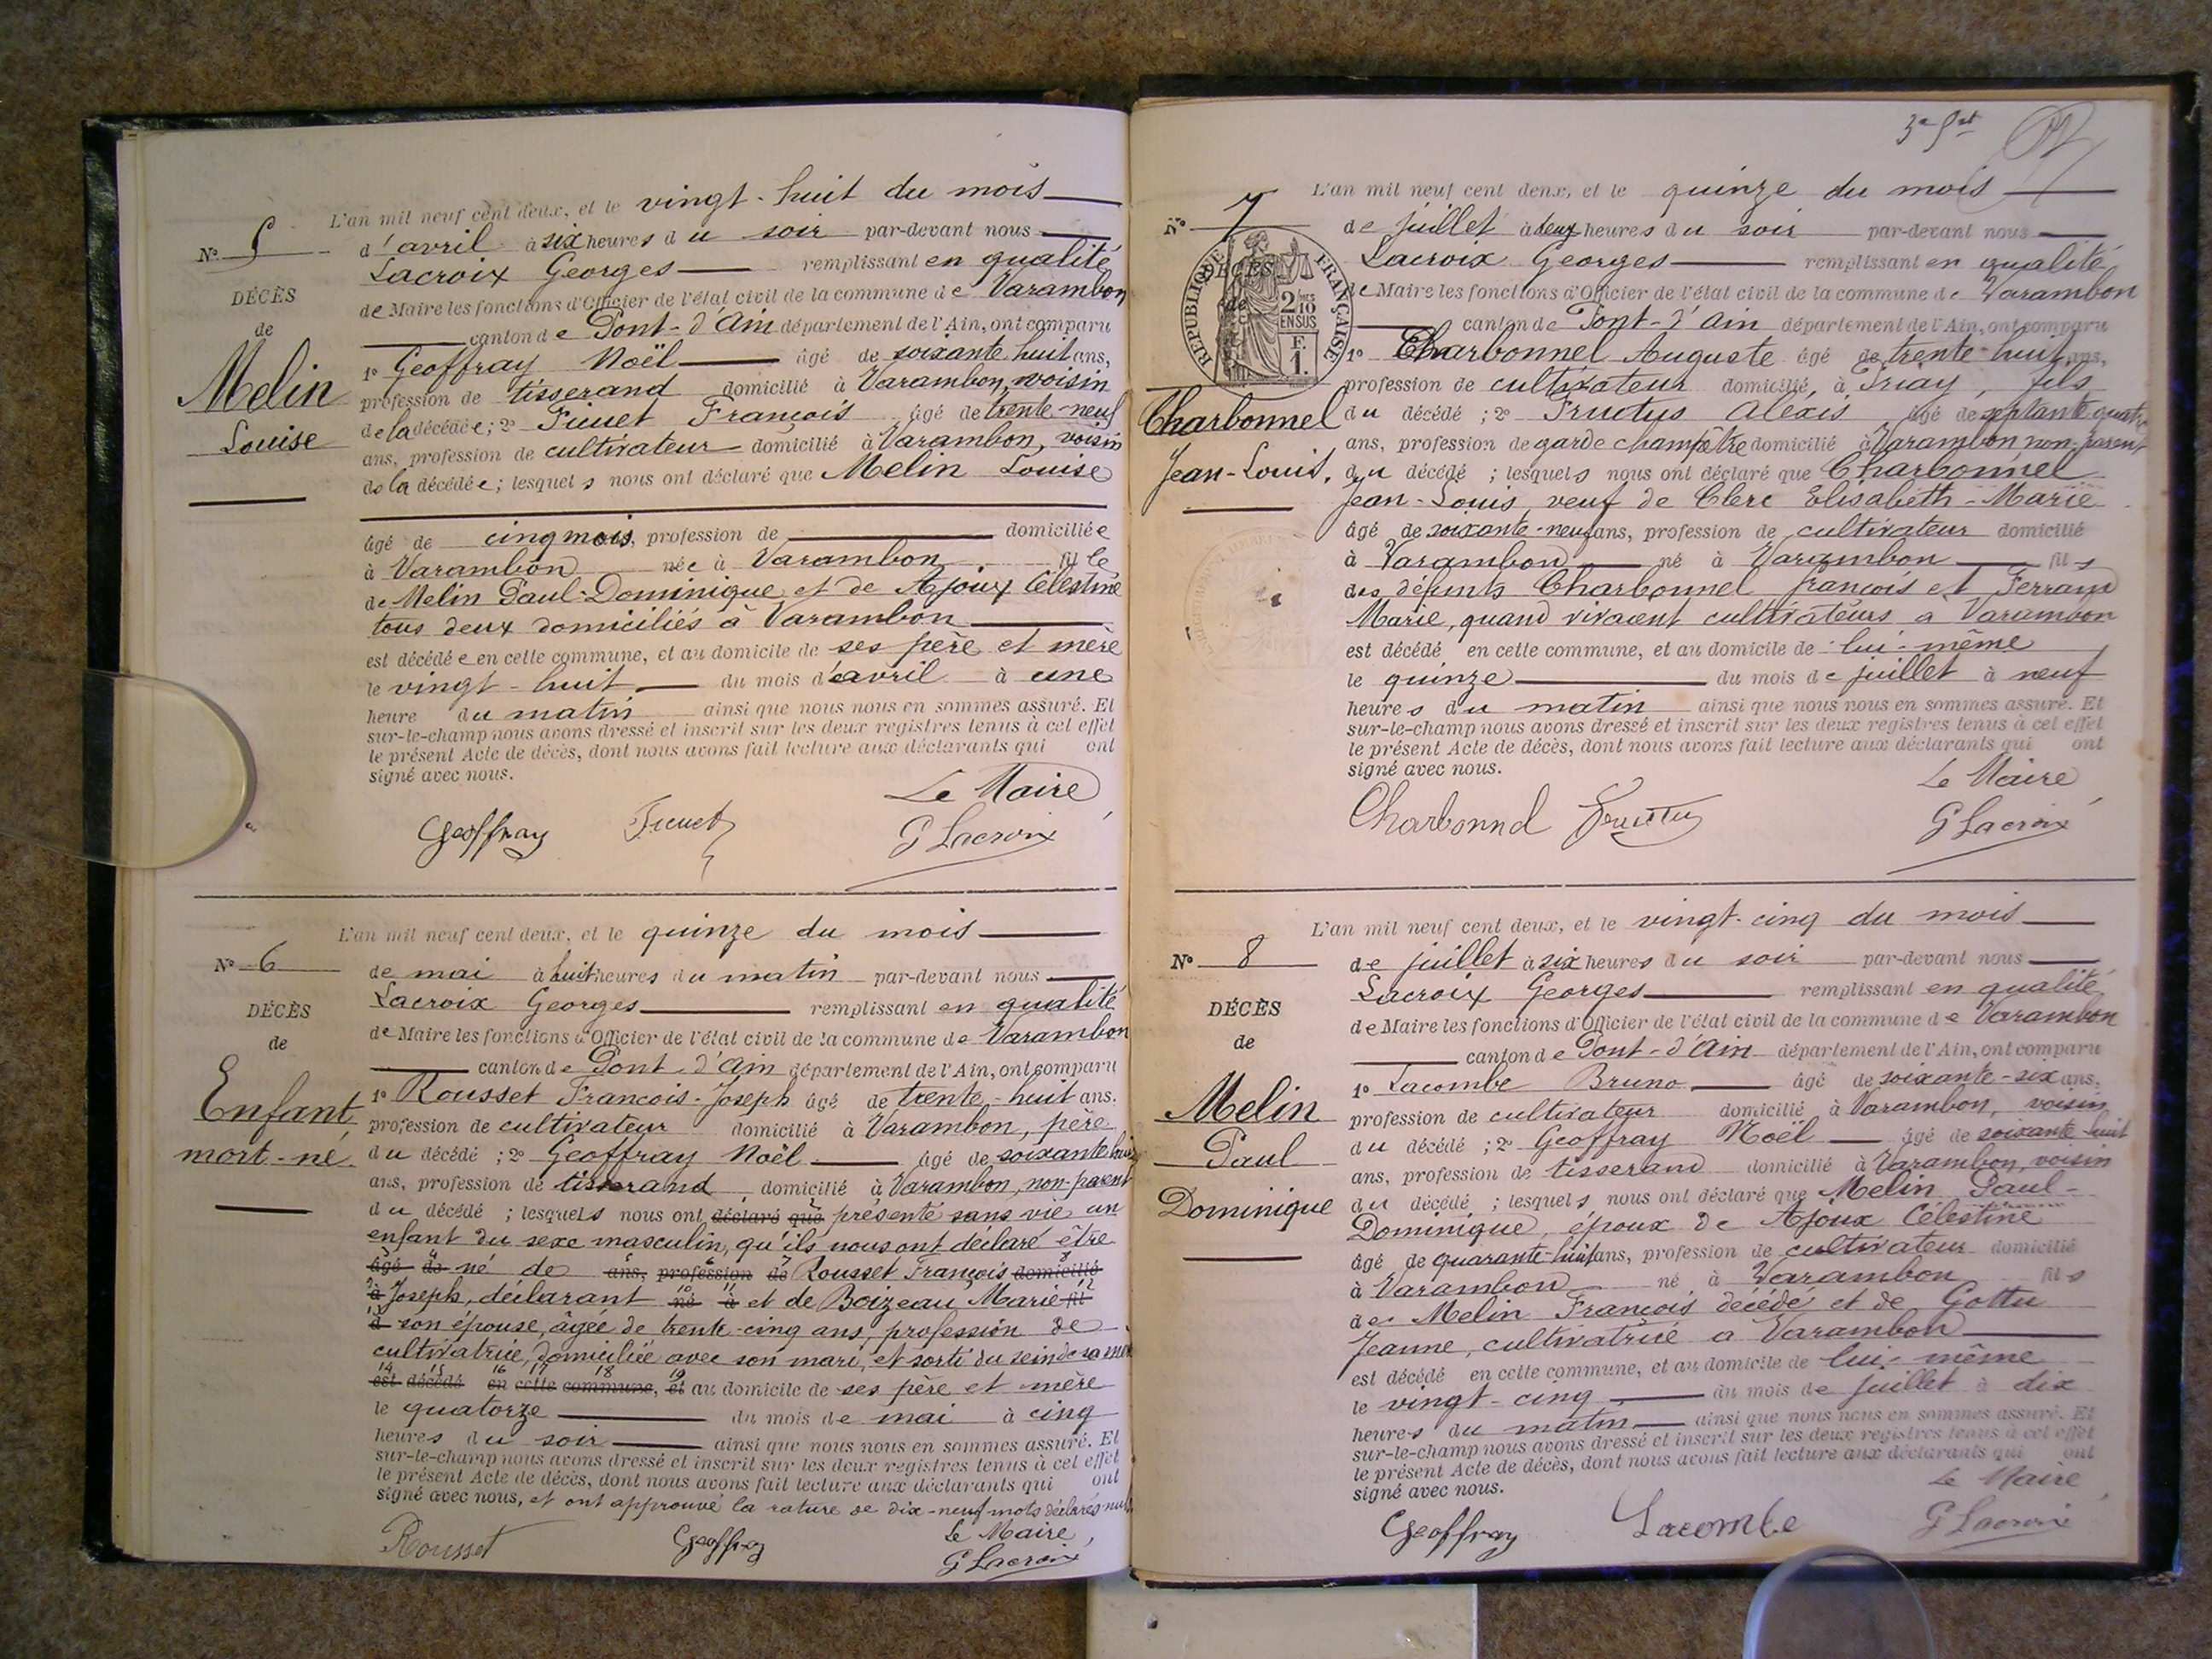 L'an mil neuf cent deux, et le vingt-huit du mois
N° 5
d'avril à six heures du soir par-devant nous
Lacroix Georges remplissant en qualité
DÉCÈS
de Maire les fonctions d'Officier de l'état civil de la commune de Varambon
de
canton de Pont-d'Ain département de l'Ain, ont comparu
Melin
1° Geoffray Noël âgé de soixante huit ans,
profession de tisserand domicilié à Varambon, voisin
Louise
de la décédée; 2° François âgé de trente-neuf
ans, profession de cultivateur domicilié à Varambon, voisin
de la décédée; lesquels nous ont déclaré que Melin Louise
âgé de cinq mois, profession de domiciliée
à Varambon née à Varambon fille
de Melin Paul-Dominique et de Ajoux Célestine
tous deux domiciliés à Varambon
est décédée en cette commune, et au domicile de ses père et mère
le vingt-huit du mois d'avril à une
heure du matin ainsi que nous nous en sommes assuré. Et
sur-le-champ nous avons dressé et inscrit sur les deux registres tenus à cet effet
le présent Acte de décès, dont nous avons fait lecture aux déclarants qui ont
signé avec nous.
Le Maire
Geoffray
G Lacroix
L'an mil neuf cent deux, et le quinze du mois
N° 6
de mai à huit heures du matin par-devant nous
Lacroix Georges remplissant en qualité
DÉCÈS
de Maire les fonctions d'Officier de l'état civil de la commune de Varambon
de
canton de Pont-d'Ain département de l'Ain, ont comparu
Enfant
1° Rousset François-Joseph âgé de trente-huit ans.
profession de cultivateur domicilié à Varambon, père
mort-né.
du décédé; 2° Geoffray Noël âgé de soixante huit
ans, profession de tisserand domicilié à Varambon, non-parent
du décédé; lesquels nous ont déclaré que présenté sans vie un
enfant du sexe masculin, qu'ils nous ont déclaré être
âgé de né de ans, profession de Rousset François domicilié
à Joseph, déclarant né à et de Boizeau Marie fil
d son épouse, âgée de trente-cinq ans, profession de
cultivatrice, domiciliée avec son mari, et sorti du sein de sa mère
14 15 16 17 18 19
est décédé en cette commune, et au domicile de ses père et mère
le quatorze du mois de mai à cinq
heures du soir ainsi que nous nous en sommes assuré. Et
sur-le-champ nous avons dressé et inscrit sur les deux registres tenus à cet effet
le présent Acte de décès, dont nous avons fait lecture aux déclarants qui ont
signé avec nous, et ont approuvé la rature de dix-neuf mots déclarés nuls
Le Maire,
Rousset Geoffray
G Lacroix
L'an mil neuf cent deux, et le quinze du mois
N° 7
de juillet à deux heures du soir par-devant nous
Lacroix Georges remplissant en qualité
DÉCÈS
de
RÉPUBLIQUE FRANÇAISE
2 10 EN SUS
F. 1.
de Maire les fonctions d'Officier de l'état civil de la commune de Varambon
canton de Pont-d'Ain département de l'Ain, ont comparu
1° Charbonnel Auguste âgé de trente-huit ans,
profession de cultivateur domicilié à Priay, fils
Charbonnel
du décédé; 2° Fructus Alexis âgé de septante quatre
ans, profession de garde champêtre domicilié à Varambon non-parent
Jean-Louis.
du décédé; lesquels nous ont déclaré que Charbonnel
Jean-Louis, veuf de Clerc Elisabeth-Marie
âgé de soixante-neuf ans, profession de cultivateur domicilié
à Varambon né à Varambon fils
des défunts Charbonnel François et Ferrand
Marie, quand vivaient cultivateurs à Varambon
est décédé en cette commune, et au domicile de lui-même
le quinze du mois de juillet à neuf
heures du matin ainsi que nous nous en sommes assuré. Et
sur-le-champ nous avons dressé et inscrit sur les deux registres tenus à cet effet
le présent Acte de décès, dont nous avons fait lecture aux déclarants qui ont
signé avec nous.
Le Maire
Charbonnel
G Lacroix
L'an mil neuf cent deux, et le vingt-cinq du mois
N° 8
de juillet à six heures du soir par-devant nous
Lacroix Georges remplissant en qualité
DÉCÈS
de Maire les fonctions d'Officier de l'état civil de la commune de Varambon
de
canton de Pont-d'Ain département de l'Ain, ont comparu
1° Lacombe Bruno âgé de soixante-six ans.
Melin
profession de cultivateur domicilié à Varambon, voisin
Paul
du décédé; 2° Geoffray Noël âgé de soixante-huit
ans, profession de tisserand domicilié à Varambon, voisin
Dominique
du décédé; lesquels nous ont déclaré que Melin Paul-
Dominique, époux de Ajoux Célestine
âgé de quarante-huit ans, profession de cultivateur domicilié
à Varambon né à Varambon fils
de Melin François décédé et de Gottu
Jeanne, cultivatrice à Varambon
est décédé en cette commune, et au domicile de lui-même
le vingt-cinq du mois de juillet à dix
heures du matin ainsi que nous nous en sommes assuré. Et
sur-le-champ nous avons dressé et inscrit sur les deux registres tenus à cet effet
le présent Acte de décès, dont nous avons fait lecture aux déclarants qui ont
signé avec nous.
Le Maire,
Geoffray Lacombe G Lacroix